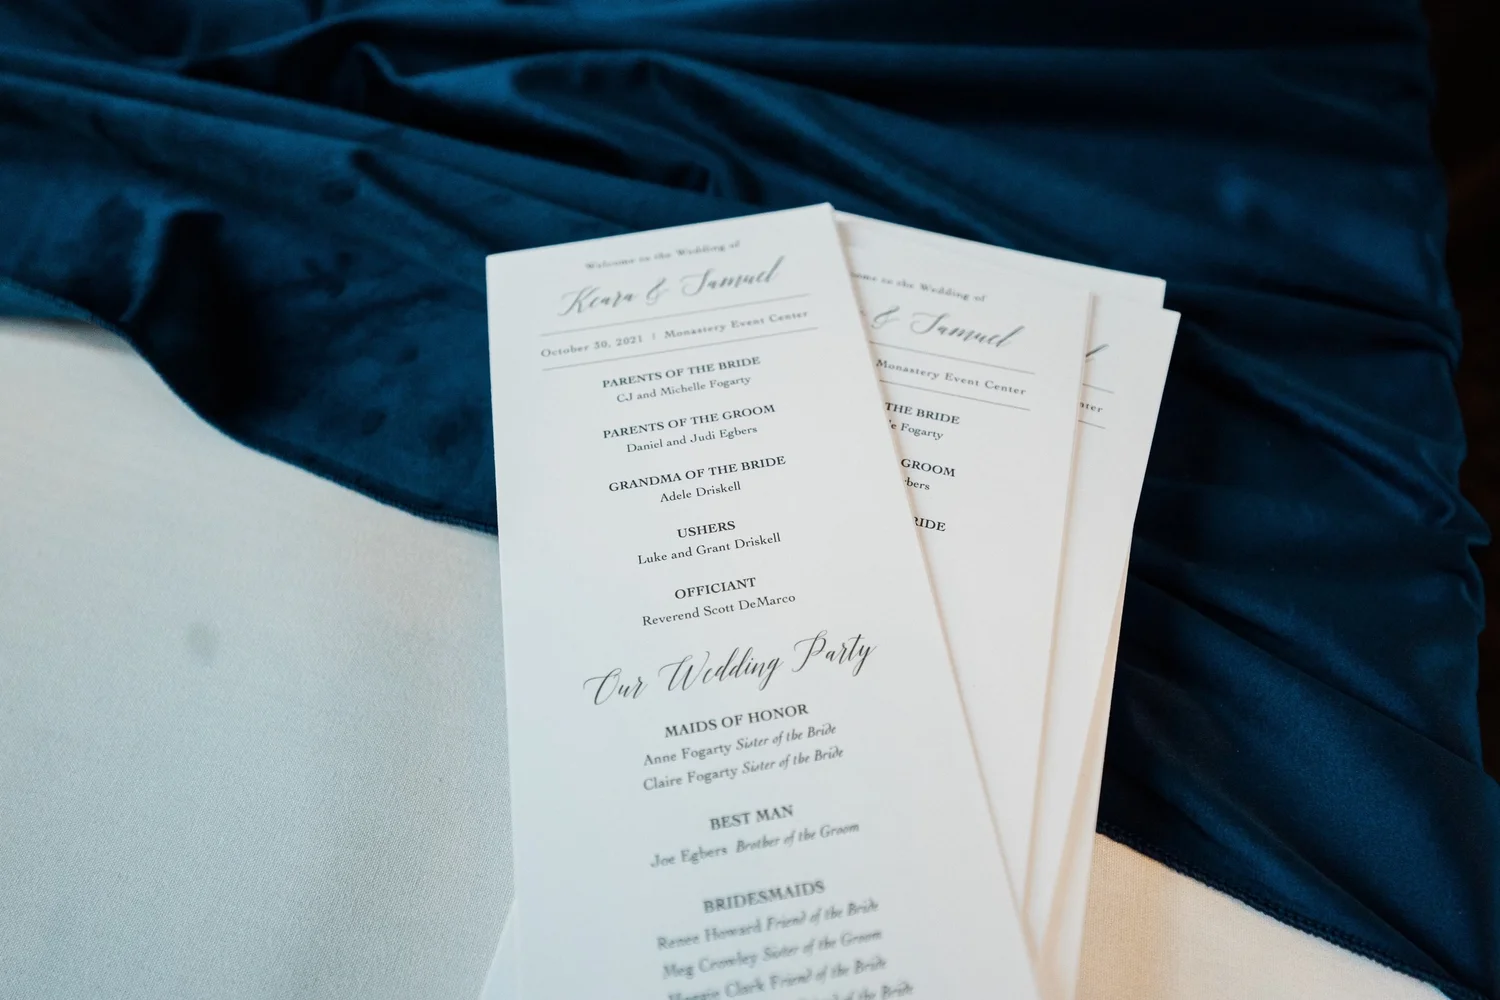 Welcome to the Wedding of
Keara & Samuel
October 30, 2021 | Monastery Event Center
PARENTS OF THE BRIDE
CJ and Michelle Fogarty
PARENTS OF THE GROOM
Daniel and Judi Egbers
GRANDMA OF THE BRIDE
Adele Driskell
USHERS
Luke and Grant Driskell
OFFICIANT
Reverend Scott DeMarco
Our Wedding Party
MAIDS OF HONOR
Anne Fogarty Sister of the Bride
Claire Fogarty Sister of the Bride
BEST MAN
Joe Egbers Brother of the Groom
BRIDESMAIDS
Renee Howard Friend of the Bride
Meg Crowley Sister of the Groom
Maggie Clark Friend of the Bride
of the Bride
to the Wedding of
& Samuel
Monastery Event Center
THE BRIDE
Fogarty
GROOM